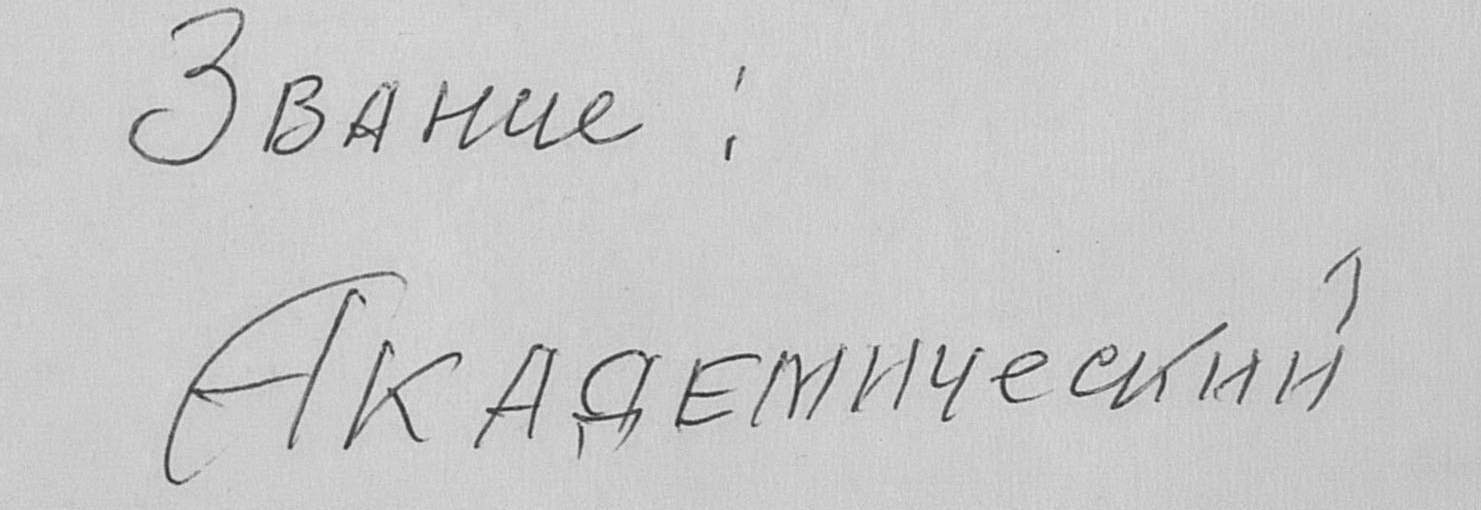 Звание:
Академический